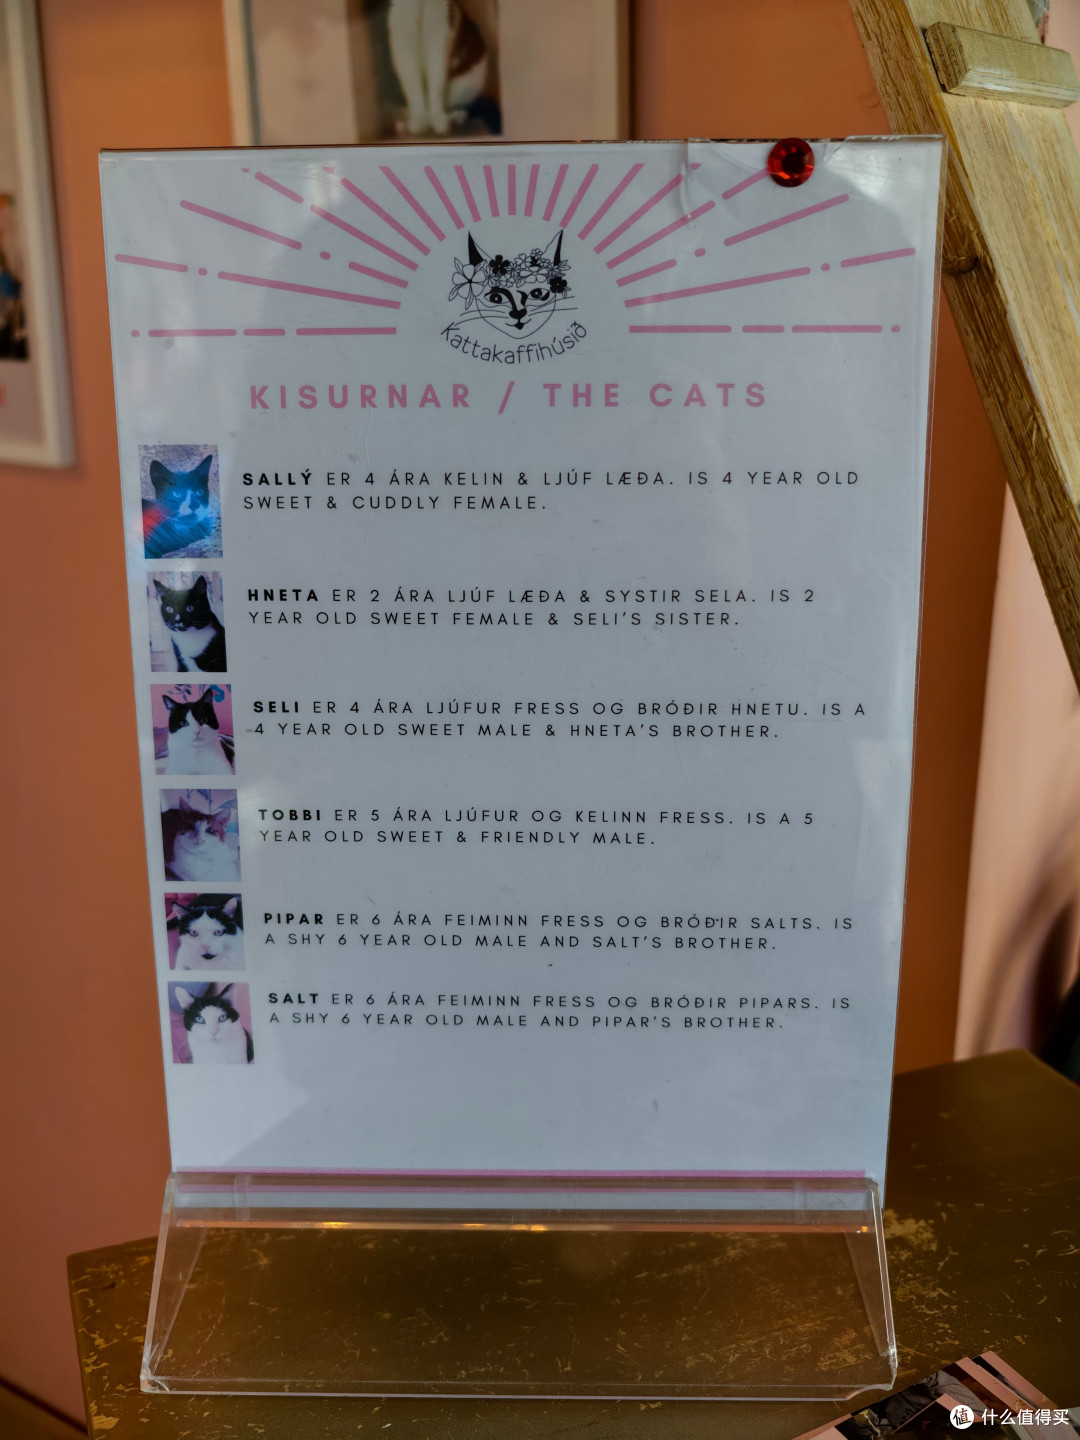 Kattakaffihúsið
KISURNAR / THE CATS
SALLÝ ER 4 ÁRA KELIN & LJÚF LÆÐA. IS 4 YEAR OLD
SWEET & CUDDLY FEMALE.
HNETA ER 2 ÁRA LJÚF LÆÐA & SYSTIR SELA. IS 2
YEAR OLD SWEET FEMALE & SELI'S SISTER.
SELI ER 4 ÁRA LJÚFUR FRESS OG BRÓÐIR HNETU. IS A
4 YEAR OLD SWEET MALE & HNETA'S BROTHER.
TOBBI ER 5 ÁRA LJÚFUR OG KELINN FRESS. IS A 5
YEAR OLD SWEET & FRIENDLY MALE.
PIPAR ER 6 ÁRA FEIMINN FRESS OG BRÓÐIR SALTS. IS
A SHY 6 YEAR OLD MALE AND SALT'S BROTHER.
SALT ER 6 ÁRA FEIMINN FRESS OG BRÓÐIR PIPARS. IS
A SHY 6 YEAR OLD MALE AND PIPAR'S BROTHER.
值 什么值得买